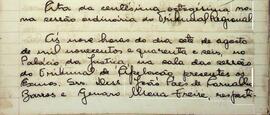 Acta da centésima octogésima no-
na sessão ordinária do Tribunal Regional
Às nove horas do dia sete de agosto
de mil novecentos e quarenta e seis, no
Palácio da Justiça, na sala das sessões
do Tribunal de Apelação, presentes os
Exmos. Srs. Des. João Paes de Carvalho
Barros e Genaro Freire,